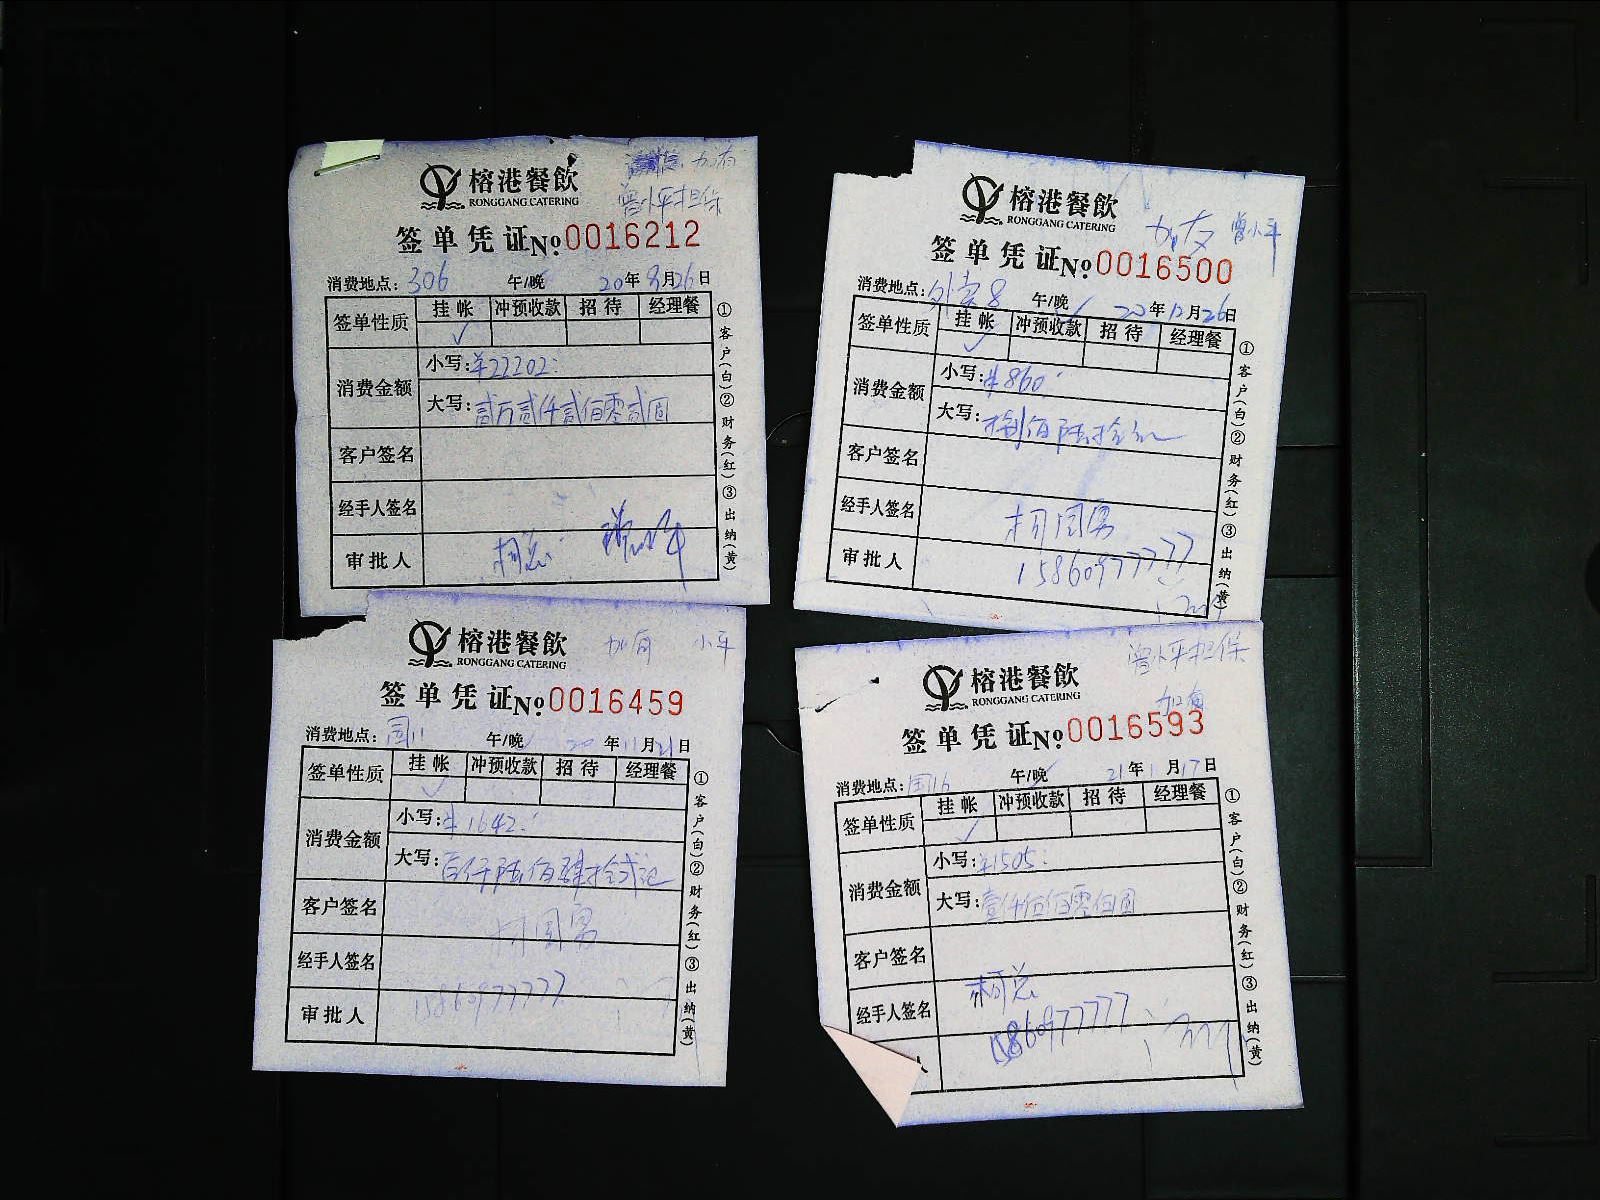 曾小平担保
榕港餐飲
RONGGANG CATERING
签单凭证No.0016212
消费地点：306 午/晚 20年8月26日
签单性质 挂帐 冲预收款 招待 经理餐
✓
消费金额 小写：¥22202：
大写：贰万贰仟贰佰零贰圆
客户签名
经手人签名
审批人 柯总
①客户（白）②财务（红）③出纳（黄）
榕港餐飲
RONGGANG CATERING
曾小平
签单凭证No.0016500
消费地点： 8 午/晚✓ 20年12月26日
签单性质 挂帐 冲预收款 招待 经理餐
✓
消费金额 小写：¥860：
大写：捌佰陆拾元
客户签名
经手人签名 柯国勇
审批人 15860977777
①客户（白）②财务（红）③出纳（黄）
榕港餐飲 小平
RONGGANG CATERING
签单凭证No.0016459
消费地点： 午/晚✓ 20年11月21日
签单性质 挂帐 冲预收款 招待 经理餐
✓
消费金额 小写：¥1642：
大写：壹仟陆佰肆拾贰元
客户签名 柯国勇
经手人签名 15860977777
审批人
①客户（白）②财务（红）③出纳（黄）
曾小平担保
榕港餐飲
RONGGANG CATERING
签单凭证No.0016593
消费地点： 16 午/晚✓ 21年1月17日
签单性质 挂帐 冲预收款 招待 经理餐
✓
消费金额 小写：¥1505：
大写：壹仟伍佰零伍圆
客户签名
经手人签名 柯总
15860977777
人
①客户（白）②财务（红）③出纳（黄）